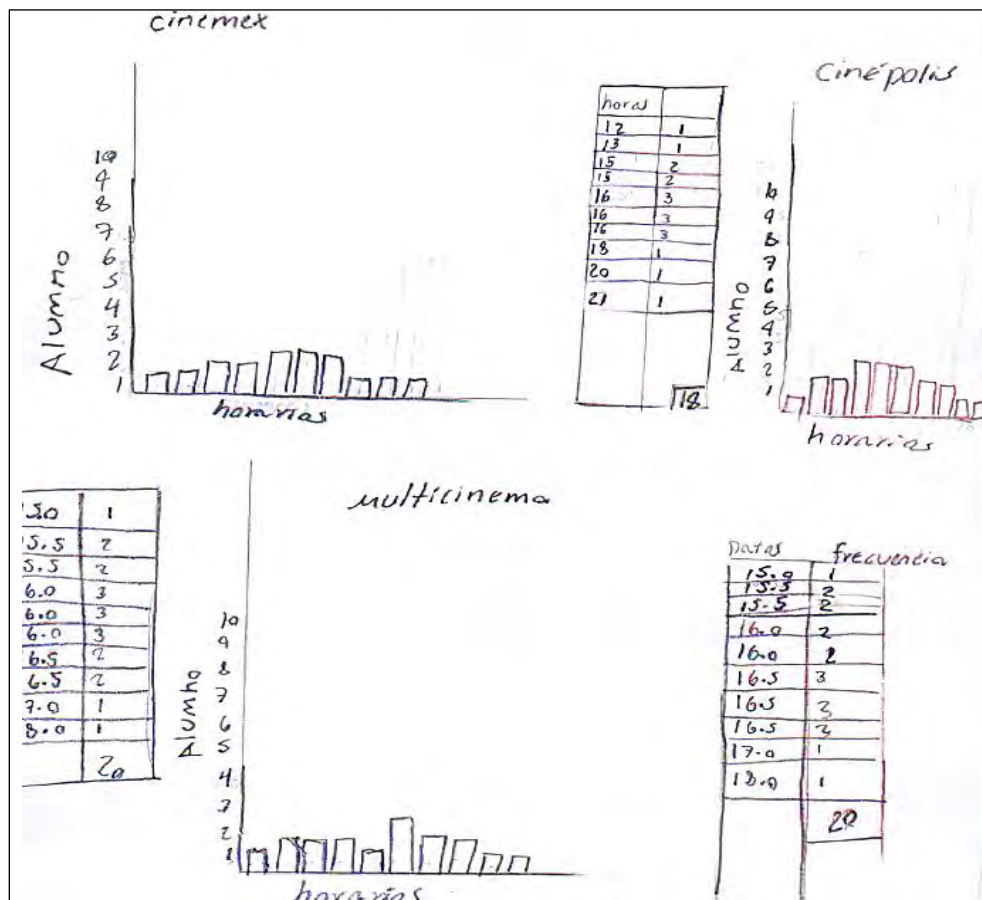 cinemex
10
9
8
7
6
5
4
3
2
1
Alumno
horarias
horas
12 1
13 1
15 2
15 2
16 3
16 3
16 3
18 1
20 1
21 1
18
Cinépolis
10
9
8
7
6
5
4
3
2
1
Alumno
horarias
15.0 1
5.5 2
5.5 2
6.0 3
6.0 3
6.0 3
6.5 2
6.5 2
7.0 1
8.0 1
20
multicinema
10
9
8
7
6
5
4
3
2
1
Alumno
horarias
Datos frecuencia
15.0 1
15.5 2
15.5 2
16.0 2
16.0 2
16.5 3
16.5 3
16.5 3
17.0 1
18.0 1
20